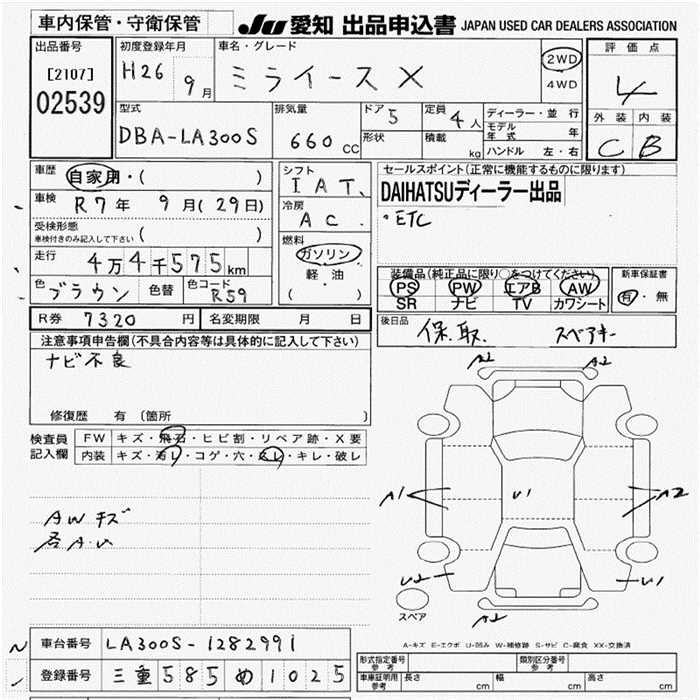 車内保管・守衛保管
JU 愛知 出品申込書 JAPAN USED CAR DEALERS ASSOCIATION
出品番号
[2107]
02539
初度登録年月
H26 9月
車名・グレード
ミライース X
2WD
4WD
評価点
4
外装 内装
C B
型式
DBA-LA300S
排気量
660 CC
ドア 5
形状
定員 4人
積載 kg
ディーラー・並行
モデル年式 年
ハンドル 左・右
車歴 自家用・( )
車検 R7年 9月(29日)
受検形態
車検付きのみ記入して下さい ( )
走行
4万4千575km
色 ブラウン 色替 色コード R59
シフト
IAT
冷房
AC
燃料
ガソリン
軽・油
( )
セールスポイント(正常に機能するものに限ります)
DAIHATSUディーラー出品
・ETC
装備品(純正品に限り○をつけてください)
PS PW エアB AW
SR ナビ TV カワシート
新車保証書
有・無
R券 7320円 名変期限 月 日
後日品 保.取. スペアキー
注意事項申告欄(不具合内容等は具体的に記入して下さい)
ナビ不良
修復歴 有 (箇所 )
検査員記入欄
FW キズ・飛石・ヒビ割・リペア跡・X要
内装 キズ・汚レ・コゲ・穴・スレ・キレ・破レ
A2 A2
A1 U1 A2
U2 U1
A2
スペア
AWキズ
各A.U
A-キズ E-エクボ U-凹み W-補修跡 S-サビ C-腐食 XX-交換済
車台番号 LA300S-1282991
登録番号 三重585め1025
形式指定番号 参考
類別区分番号 参考
車庫証明用 参考 長さ cm 幅 cm 高さ cm